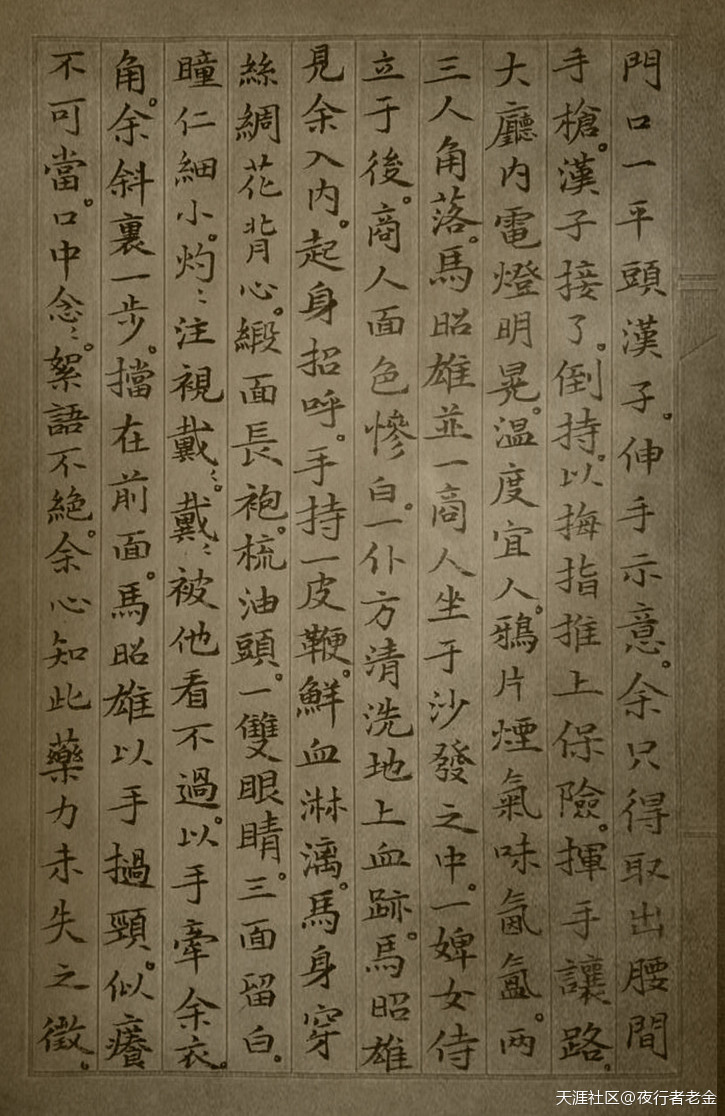 門口一平頭漢子。伸手示意。余只得取出腰間
手槍。漢子接了。倒持。以拇指推上保險。揮手讓路。
大廳内電燈明晃。温度宜人。鴉片煙氣味氤氳。兩
三人角落。馬昭雄並一商人坐于沙發之中。一婢女侍
立于後。商人面色慘白。一仆方清洗地上血跡。馬昭雄
見余入内。起身招呼。手持一皮鞭。鮮血淋漓。馬身穿
絲綢花背心。緞面長袍。梳油頭。一雙眼睛。三面留白。
瞳仁細小。灼〻注視戴〻。戴〻被他看不過。以手牽余衣
角。余斜裏一步。擋在前面。馬昭雄以手撾頸。似癢
不可當。口中念〻。絮語不絶。余心知此藥力未失之徵。
天涯社区@夜行者老金